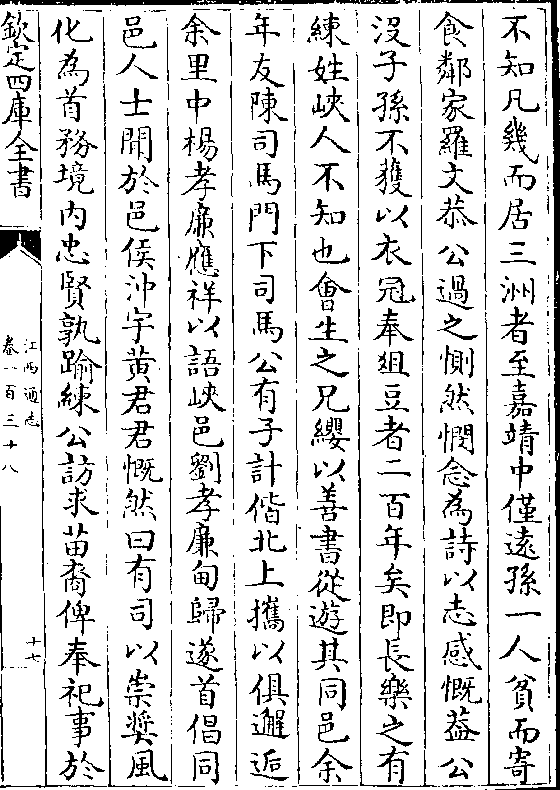 不知凡幾而居三洲者至嘉靖中僅遠孫一人貧而寄
食鄰家羅文恭公過之惻然憫念為詩以志感慨葢公
没子孫不獲以衣冠奉俎豆者二百年矣即長樂之有
練姓峽人不知也會生之兄纓以善書從遊其同邑余
年友陳司馬門下司馬公有子計偕北上攜以俱邂逅
余里中楊孝廉應祥以語峽邑劉孝廉甸歸遂首倡同
邑人士聞於邑侯沖宇黄君君慨然曰有司以崇奬風
化為首務境内忠賢孰踰練公訪求苗裔俾奉祀事於
欽定四庫全書
江西通志
卷一百三十八
十七